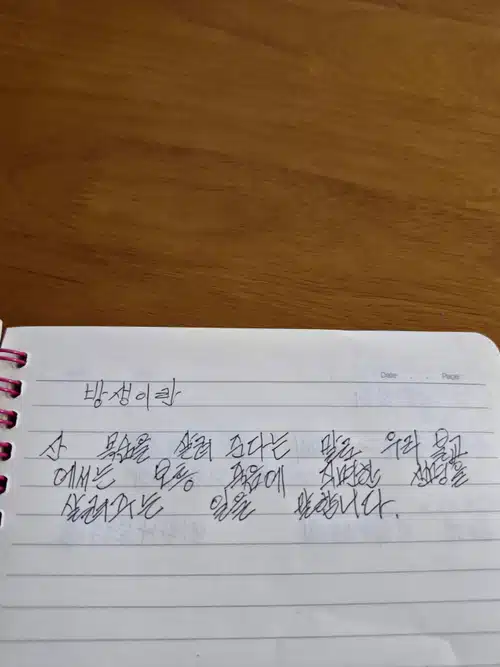 Date: Page:
방생이란
산 목숨을 살려 준다는 말은 우리 불교
에서는 모든 죽음에 직면한 생명을
살려주는 일을 말합니다.